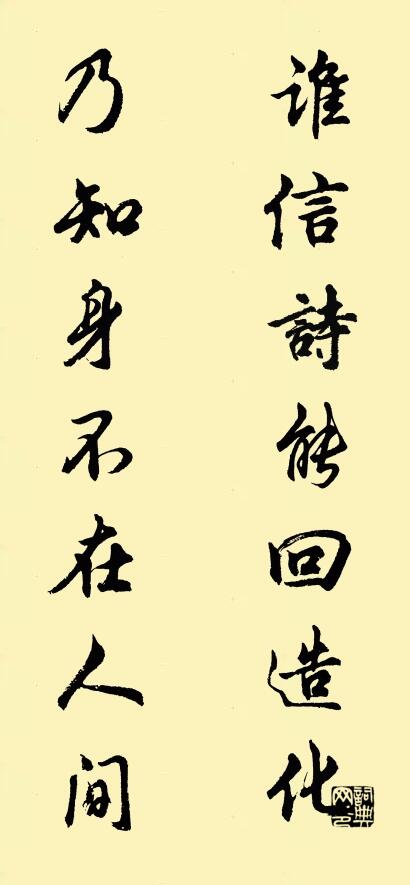 誰信詩能回造化
乃知身不在人间
詞典
网